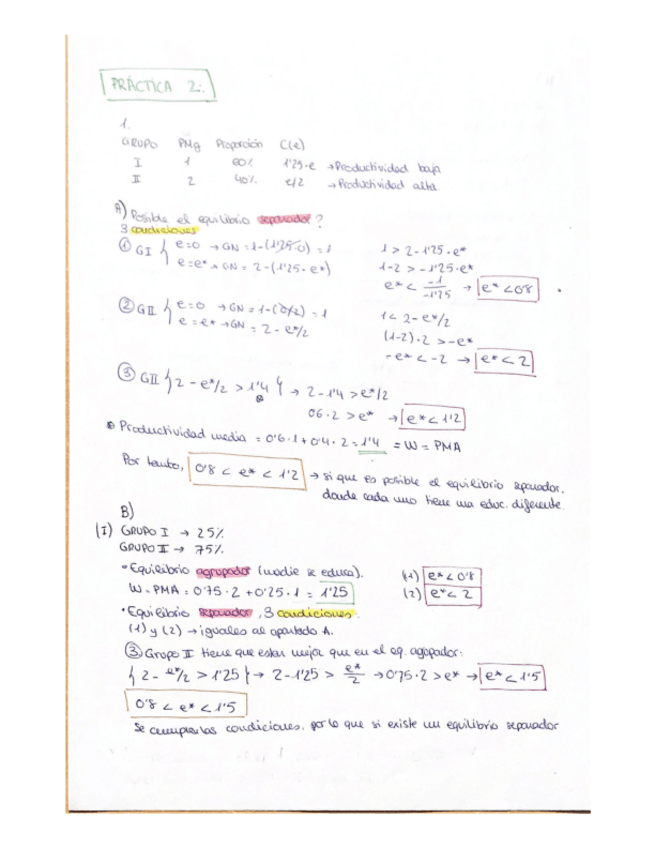 PRÁCTICA 2:.
1.
GRUPO PMg Proporción C(e)
I 1 60% 1'25·e → Productividad baja
II 2 40% e/2 → Productividad alta
A) Posible el equilibrio separador?
3 condiciones
① GI { e=0 → GN = 1-(1'25·0) = 1
e=e* → GN = 2-(1'25·e*)
1 > 2-1'25·e*
1-2 > -1'25·e*
e* < -1/-1'25 → e* < 0'8
② GII { e=0 → GN = 1-(0/2) = 1
e=e* → GN = 2-e*/2
1 < 2-e*/2
(1-2)·2 > -e*
-e* < -2 → e* < 2
③ GII { 2-e*/2 > 1'4 } → 2-1'4 > e*/2
0'6·2 > e* → e* < 1'2
Productividad media = 0'6·1+0'4·2 = 1'4 = W = PMA
Por tanto, 0'8 < e* < 1'2 → si que es posible el equilibrio separador,
donde cada uno tiene una educ. diferente.
B)
(I) GRUPO I → 25%
GRUPO II → 75%
• Equilibrio agrupador (nadie se educa).
W = PMA = 0'75·2+0'25·1 = 1'25
(1) e* < 0'8
(2) e* < 2
• Equilibrio separador, 3 condiciones.
(1) y (2) → iguales al apartado A.
③ Grupo II tiene que estar mejor que en el eq. agrupador:
{ 2-e*/2 > 1'25 } → 2-1'25 > e*/2 → 0'75·2 > e* → e* < 1'5
0'8 < e* < 1'5
Se cumplen las condiciones, por lo que si existe un equilibrio separador